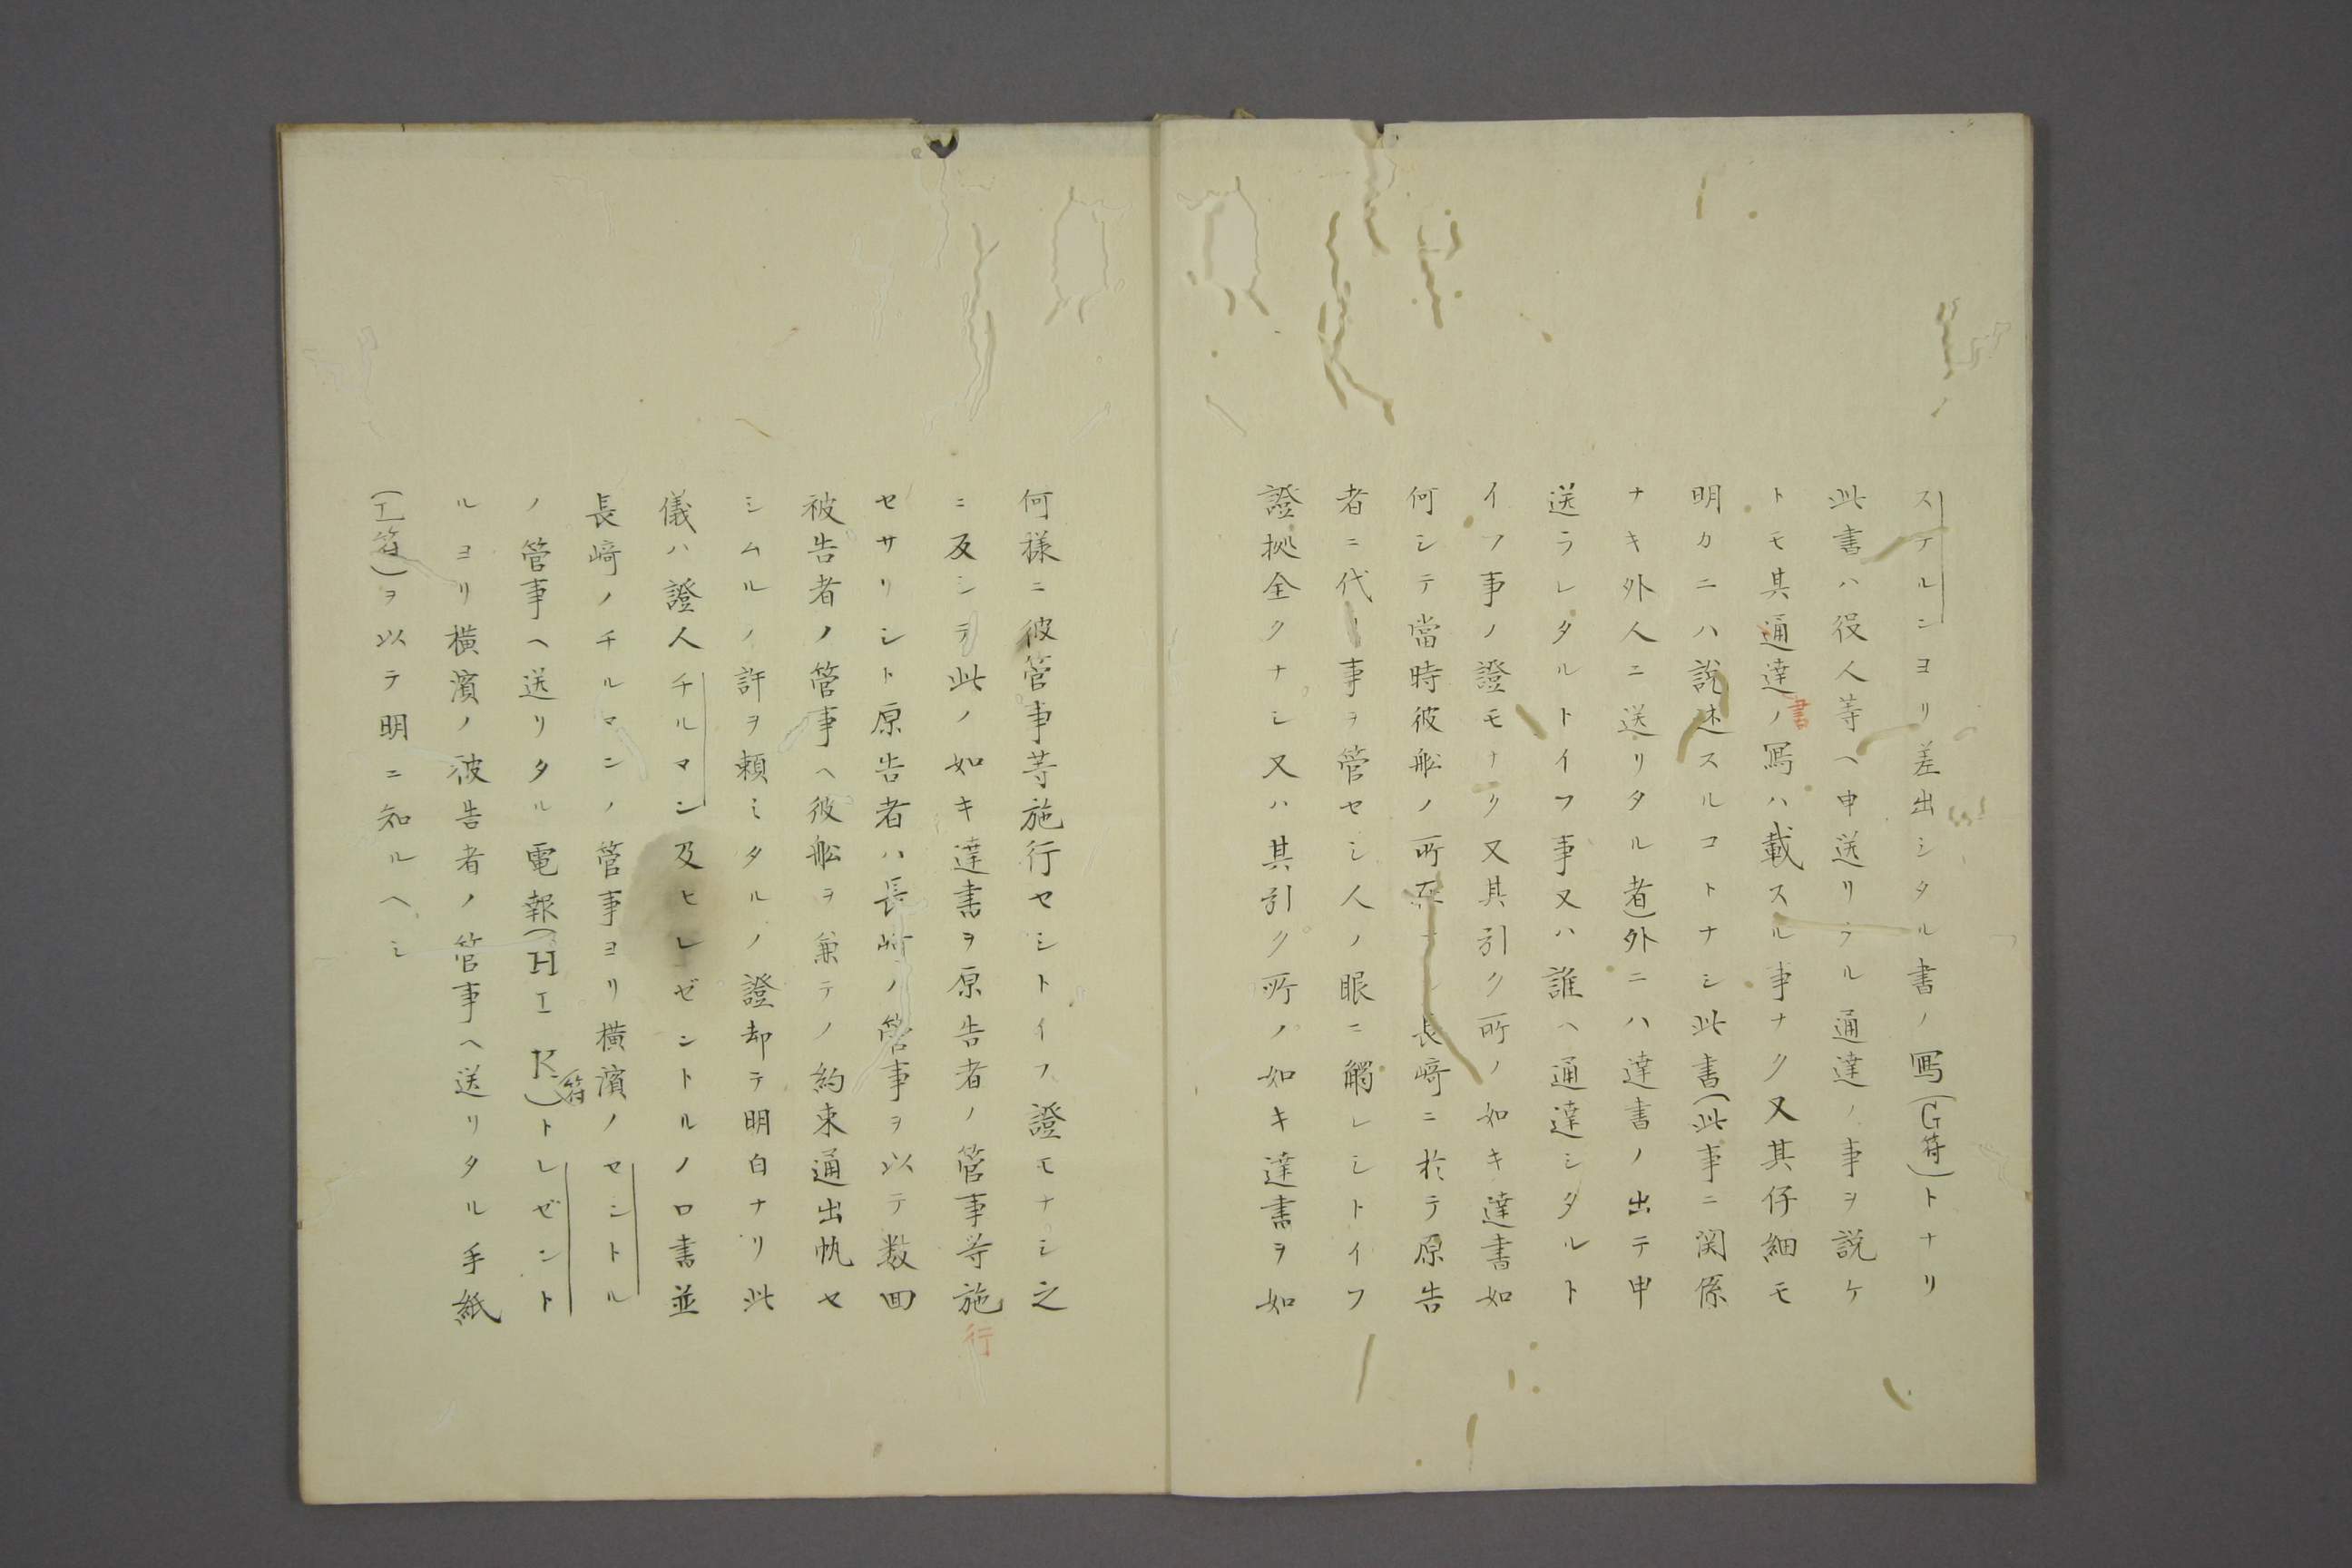 ステルンヨリ差出シタル書ノ写(G符)トナリ
此書ハ役人等ヘ申送リタル通達ノ事ヲ説ケ
トモ其通達書ノ写ハ載スル事ナク又其仔細モ
明カニハ説述スルコトナシ此書(此事ニ関係
ナキ外人ニ送リタル者)外ニハ達書ノ出テ申
送ラレタルトイフ事又ハ誰ヘ通達シタルト
イフ事ノ證モナク又其引ク所ノ如キ達書如
何シテ當時彼舩ノ所在 長﨑ニ於テ原告
者ニ代リ事ヲ管セシ人ノ眼ニ觸レシトイフ
證拠全クナシ又ハ其引ク所ノ如キ達書ヲ如
何様ニ彼管事等施行セシトイフ證モナシ之
ニ反シテ此ノ如キ達書ヲ原告者ノ管事等施行
セサリシト原告者ハ長﨑ノ管事ヲ以テ数回
被告者ノ管事ヘ彼舩ヲ兼テノ約束通出帆セ
シムルノ許ヲ頼ミタルノ證却テ明白ナリ此
儀ハ證人チルマン及ヒレゼントルノ口書並
長﨑ノチルマンノ管事ヨリ横濱ノセントル
ノ管事ヘ送リタル電報(H I K符)トレゼント
ルヨリ横濱ノ被告者ノ管事ヘ送リタル手紙
(I符)ヲ以テ明ニ知ルヘシ